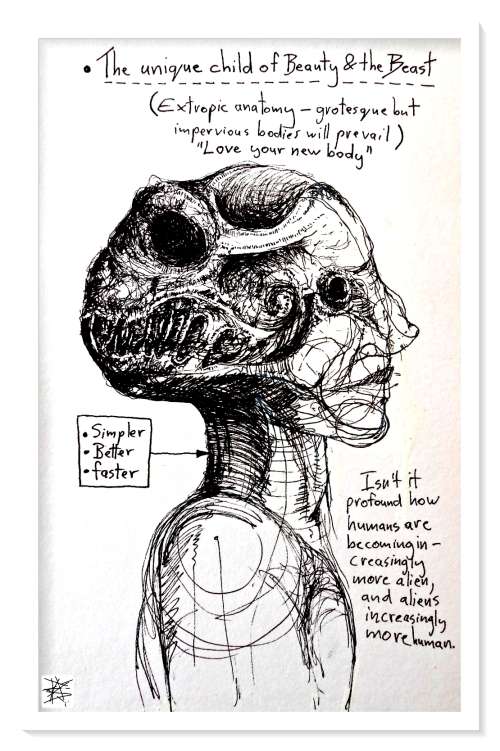 • The unique child of Beauty & the Beast
(Extropic anatomy – grotesque but
impervious bodies will prevail)
"Love your new body"
• Simpler
• Better
• faster
Isn't it
profound how
humans are
becoming in–
creasingly
more alien,
and aliens
increasingly
more human.